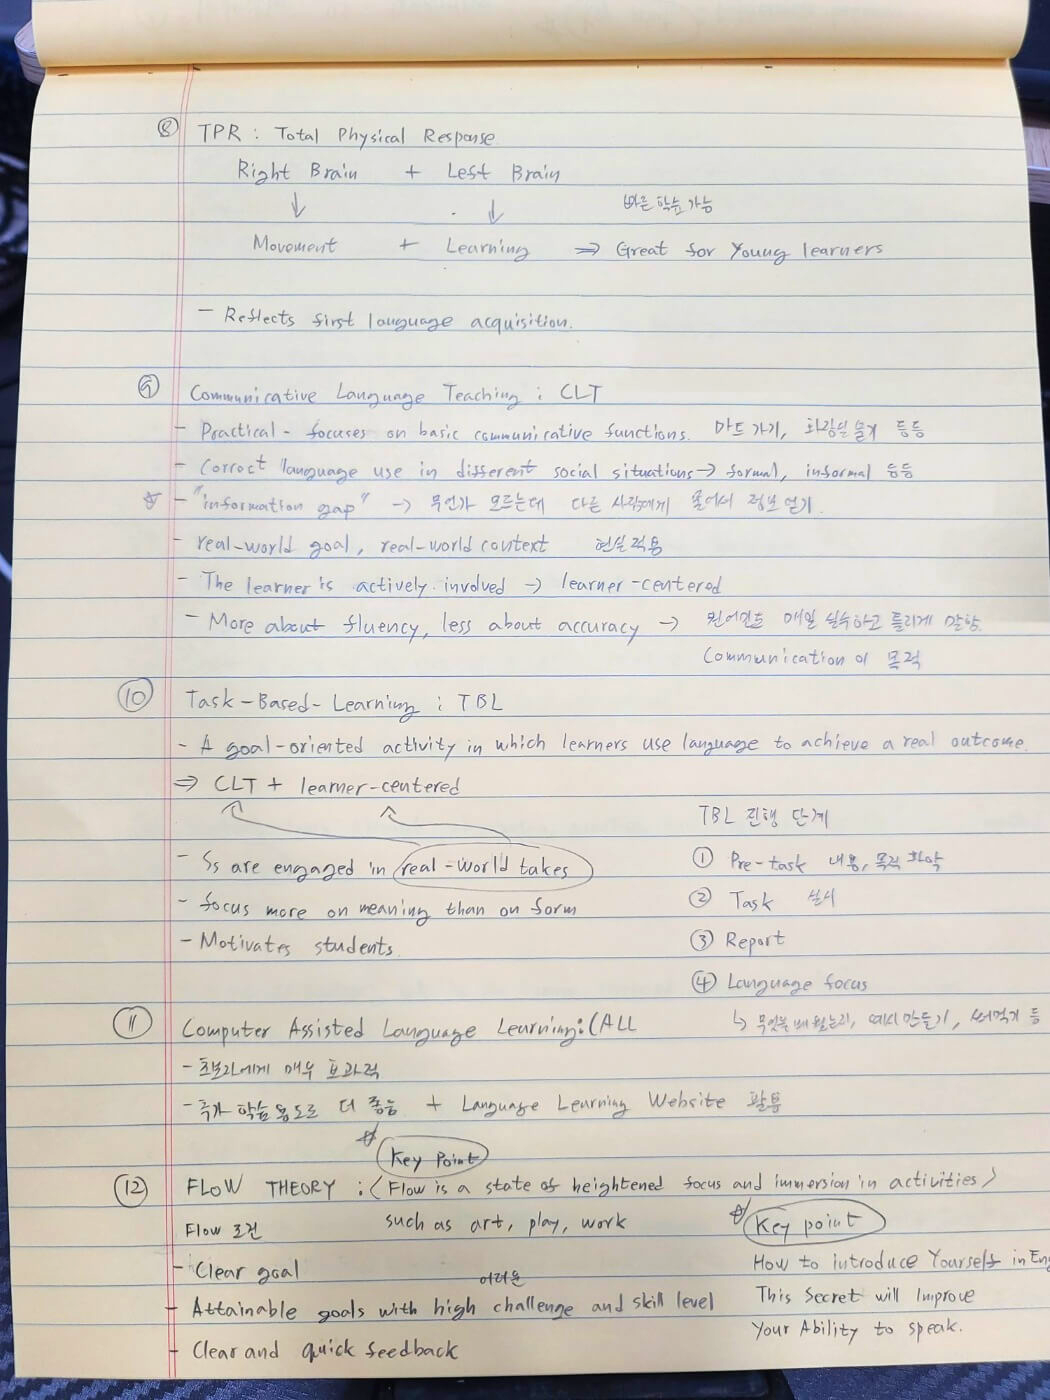 ⑧ TPR : Total Physical Response.
Right Brain + Left Brain
↓ ↓ 빠른 학습 가능
Movement + Learning ⇒ Great for Young learners
- Reflects first language acquisition.
⑨ Communicative Language Teaching : CLT
- Practical - focuses on basic communicative functions. 마트 가기, 화장실 찾기 등등
- Correct language use in different social situations → formal, informal 등등
☆ - "information gap" → 무언가 모르는데 다른 사람에게 물어서 정보 얻기.
- real-world goal, real-world context 현실적용
- The learner is actively involved → learner-centered
- More about fluency, less about accuracy → 원어민도 매일 실수하고 틀리게 말함.
Communication이 목적
⑩ Task-Based-Learning : TBL
- A goal-oriented activity in which learners use language to achieve a real outcome.
⇒ CLT + learner-centered
TBL 진행 단계
- Ss are engaged in real-world takes
① Pre-task 내용, 목적 파악
- focus more on meaning than on form
② Task 실시
- Motivates students.
③ Report
④ Language focus
⑪ Computer Assisted Language Learning : CALL
↳ 무엇을 배웠는지, 예시 만들기, 써먹기 등
- 초보자에게 매우 효과적
- 추가 학습 용도로 더 좋음 + Language Learning Website 활용
☆ Key Point
⑫ FLOW THEORY : (Flow is a state of heightened focus and immersion in activities)
Flow 조건 such as art, play, work
☆ Key point
- Clear goal
How to introduce Yourself in En
어려운
- Attainable goals with high challenge and skill level
This Secret will Improve
Your Ability to speak.
- Clear and quick feedback